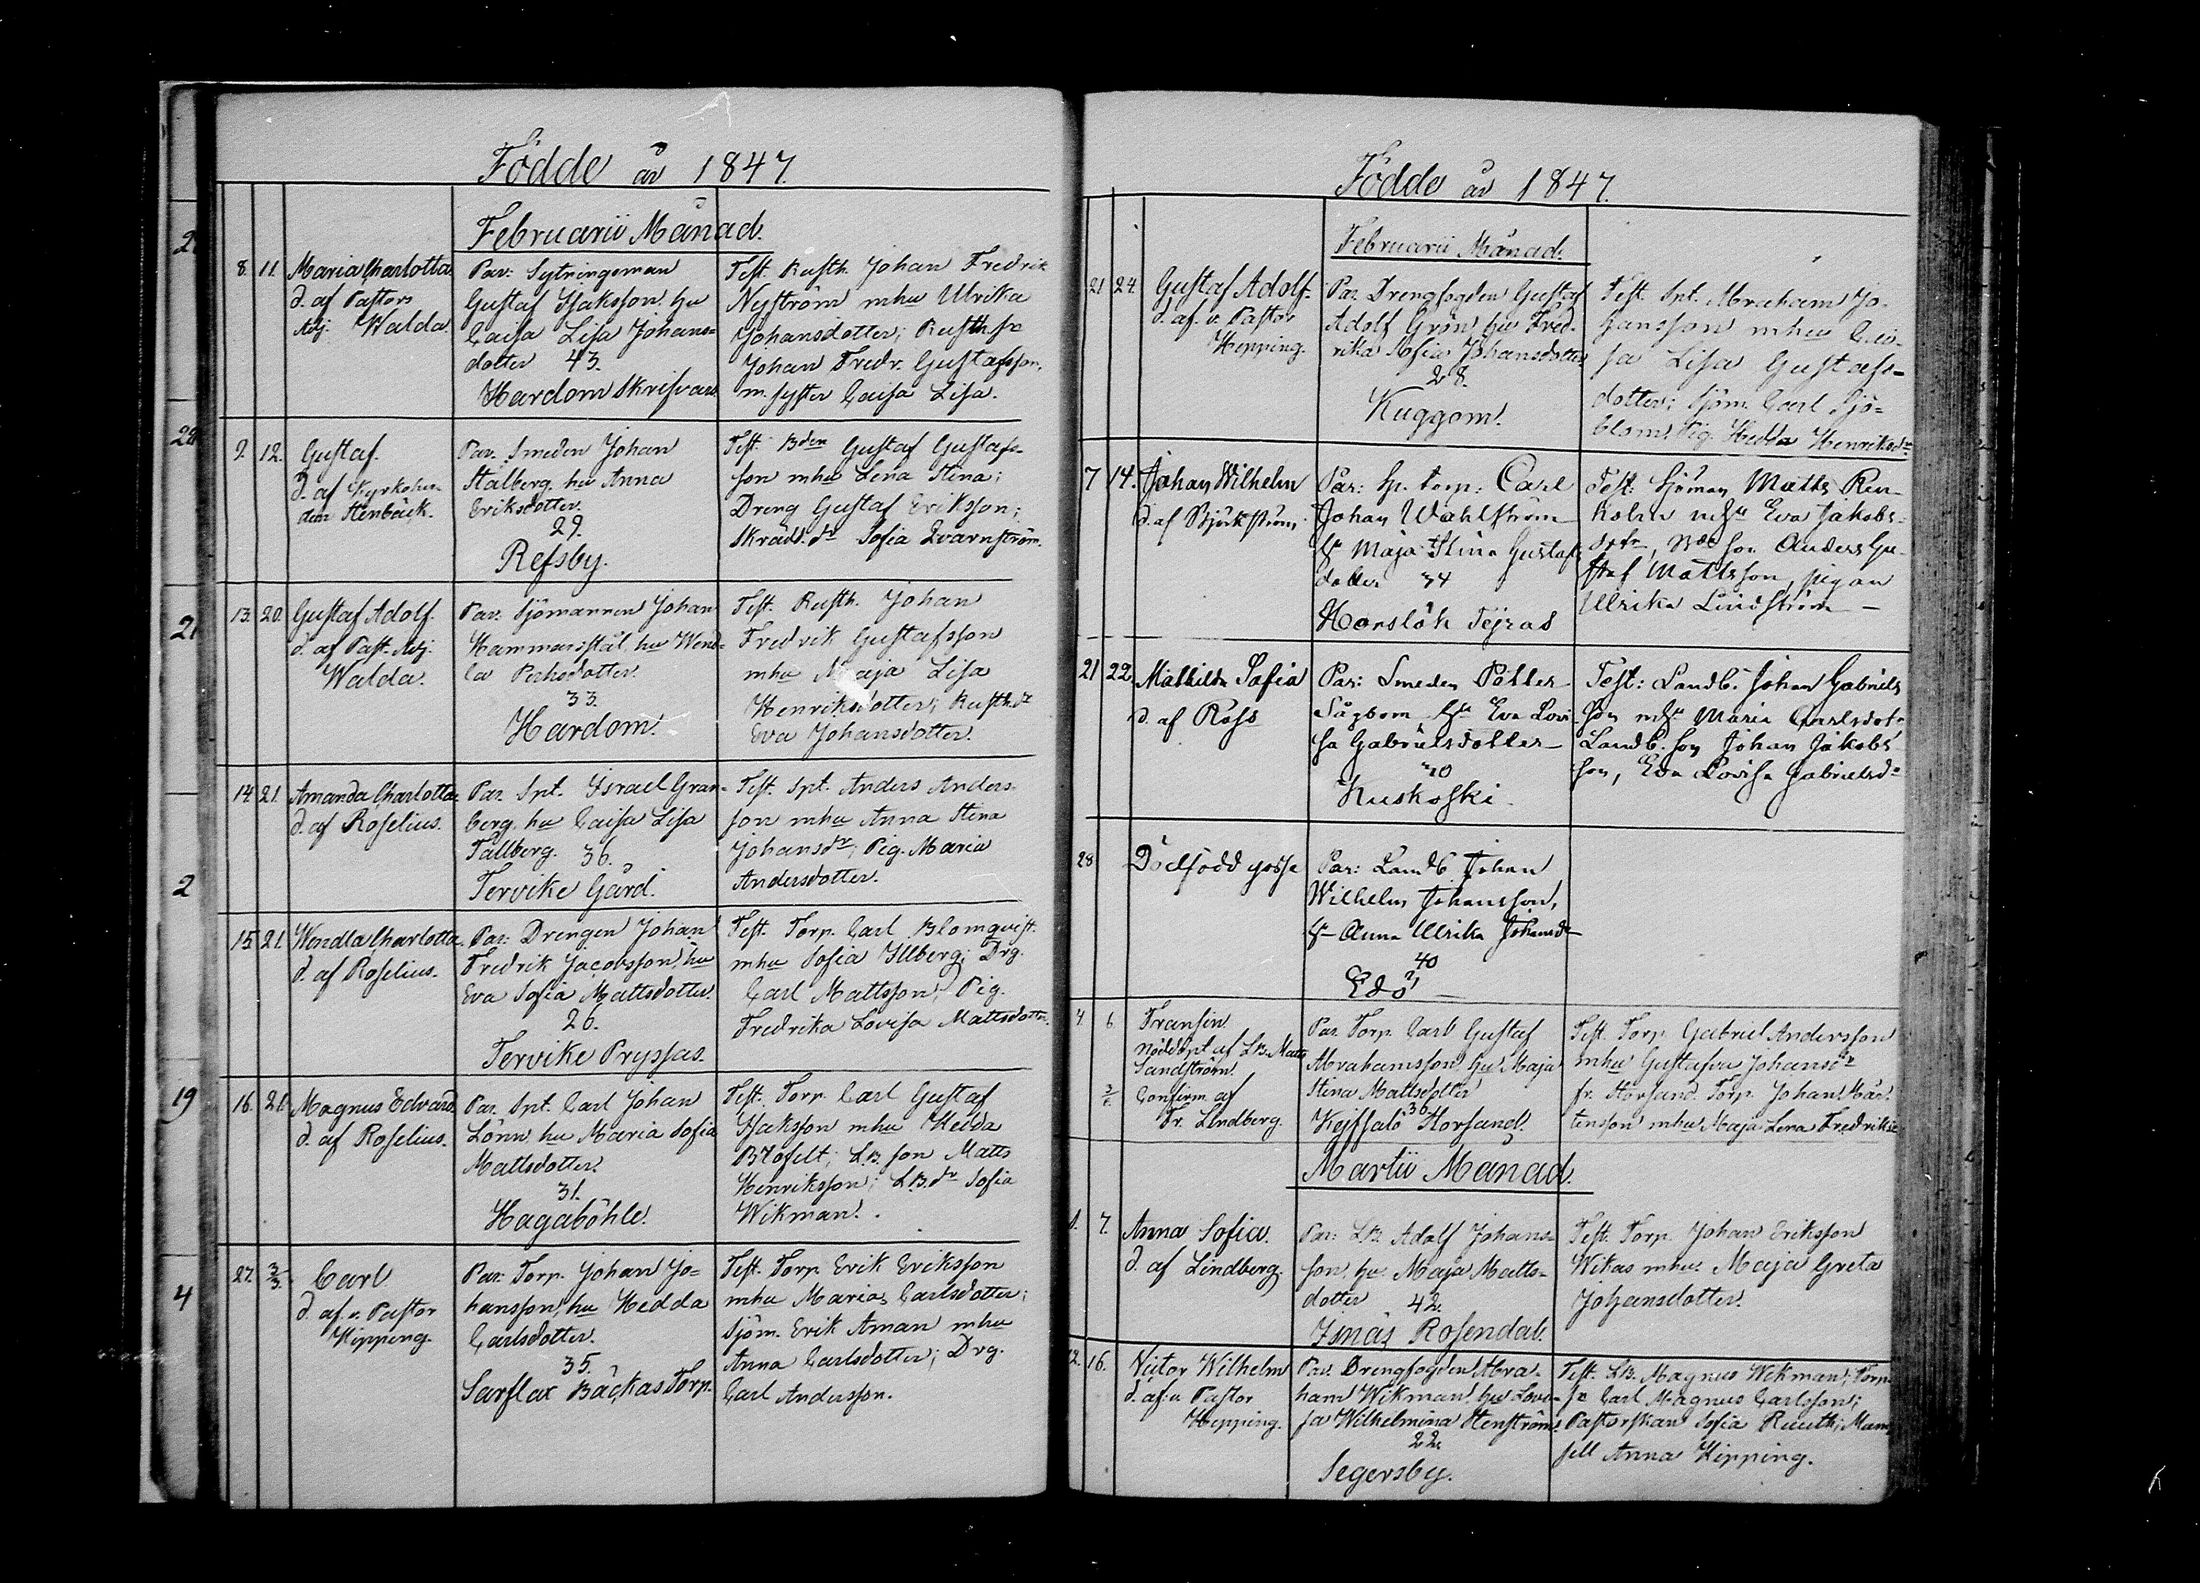 Födde år 1847.
Februarii Månad.
8. 11. Maria Charlotta
d. af Pastors
Adj. Walda
Par: Sytningsman
Gustaf Isaksson hu
Caisa Lisa Johans-
dotter 43.
Hardom Skrifvars
Test. Rusth. Johan Fredrik
Nyström mhu Ulrika
Johansdotter; Rusth sr
Johan Fredr. Gustafsson,
m. syster Caisa Lisa.
9. 12. Gustaf.
d. af Kyrkoher-
den Stenbäck.
Par. Smeden Johan
Stålberg hu Anna
Eriksdotter.
29.
Refsby.
Test. Bden Gustaf Gustafs-
son mhu Lena Stina;
Dreng Gustaf Eriksson;
Skrädd. dr Sofia Qvarnström.
13. 20. Gustaf Adolf.
d. af Past. Adj.
Walda.
Par. Sjömannen Johan
Hammarstål, hu Wend-
la Pehrsdotter.
33.
Hardom.
Test. Rusth. Johan
Fredrik Gustafsson
mhu Maja Lisa
Henriksdotter; Rusth. dr
Eva Johansdotter.
14. 21. Amanda Charlotta
d. af Roselius.
Par. Spt. Israel Gran-
berg hu Caisa Lisa
Tallberg. 36.
Tervike Gård.
Test. Spt. Anders Anders-
son mhu Anna Stina
Johansdr; Pig. Maria
Andersdotter.
15. 21. Wendla Charlotta
d. af Roselius.
Par. Drengen Johan
Fredrik Jacobsson, hu
Eva Sofia Mattsdotter.
26.
Tervike Pryssas.
Test. Torp. Carl Blomqvist
mhu Sofia Illberg; Drg.
Carl Mattsson; Pig.
Fredrika Lovisa Mattsdotter.
16. 21. Magnus Edvard
d. af Roselius.
Par. Spt. Carl Johan
Lönn, hu Maria Sofia
Mattsdotter.
31.
Hagaböhle.
Test. Torp. Carl Gustaf
Isaksson mhu Hedda
Blåfelt; LB. son Matts
Henriksson; LB. dr Sofia
Wikman.
27. 3/3. Carl
d. af v. Pastor
Hipping.
Par. Torp. Johan Jo-
hansson, hu Hedda
Carlsdotter.
35.
Sarflax Bäckas Torp.
Test. Torp. Erik Eriksson
mhu Maria Carlsdotter;
Sjöm. Erik Åman mhu
Anna Carlsdotter; Drg.
Carl Andersson.
Födde år 1847.
Februarii Månad.
21 24. Gustaf Adolf.
d. af v. Pastor
Hipping.
Par. Drengfogden Gustaf
Adolf Grön, hu Fred-
rika Sofia Johansdotter
28.
Kuggom.
Test. Spt. Abraham Jo-
hansson mhu Cai-
sa Lisa Gustafs-
dotter; Sjöm. Carl Sjö-
blom, Pig. Hedda Henriksdr
7 14. Johan Wilhelm
d. af Björkström.
Par: Sp. torp: Carl
Johan Wahlström
hu Maja Stina Gustafs
dotter 34
Horslök Tejras
Test: Sjöman Matts Ren-
holm mhu Eva Jakobs-
dotr, Bde son Anders Gu-
staf Mattsson, pigan
Ulrika Lindström
21 22 Mathilda Sofia
d. af Ross
Par: Smeden Petter
Sågbom, hu Eva Lovi
sa Gabrielsdotter
40
Kuskoski
Test: Landb. Johan Gabriels
son mhu Maria Carlsdotr
Landb. son Johan Jakobs
son, Eva Lovisa Gabrielsdr
28 Dödfödd gosse
Par: Landb. Johan
Wilhelm Johansson,
hu Anna Ulrika Johansdr
40
Edö
4. 6. Fransin
nöddöpt af LB. Matts
Sandström.
Confirm. af
Fr. Lindberg.
Par. Torp. Carl Gustaf
Abrahamsson, hu Maja
Stina Mattsdotter
36
Kejvsalö Storsand.
Test. Torp. Gabriel Andersson
mhu Gustafva Johansdr
fr. Storsand. Torp. Johan Mår-
tensson mhu Maja Lena Fredriksdr
Martii Månad.
1. 7. Anna Sofia.
d. af Lindberg.
Par. LB. Adolf Johans-
son, hu Maja Matts-
dotter 42.
Isnäs Rosendal.
Test. Torp. Johan Eriksson
Wikas mhu Maja Greta
Johansdotter.
12. 16. Victor Wilhelm
d. af v. Pastor
Hipping.
Par. Drengfogden Abra-
ham Wikman, hu Lovi-
sa Wilhelmina Stenström.
22.
Segersby.
Test. LB. Magnus Wikman; Torp.
sr Carl Magnus Carlsson;
Pastorskan Sofia Ruuth; Mam-
sell Anna Hipping.